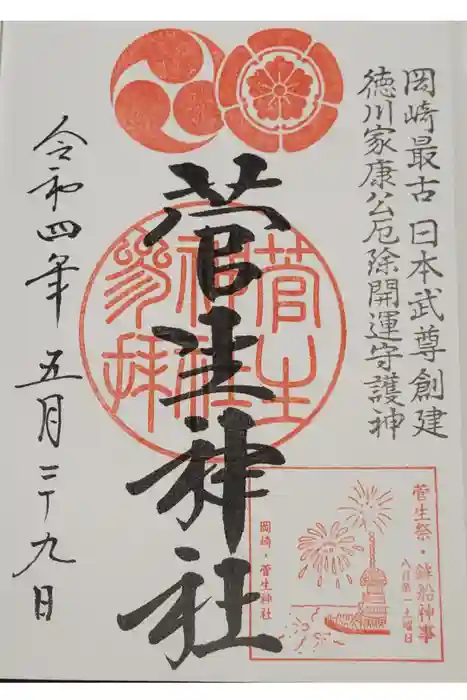 岡崎最古 日本武尊創建
徳川家康公厄除開運守護神
菅生神社
菅生
神社
参拝
令和四年五月二十九日
菅生祭・鉾船神事
八月第一土曜日
岡崎・菅生神社